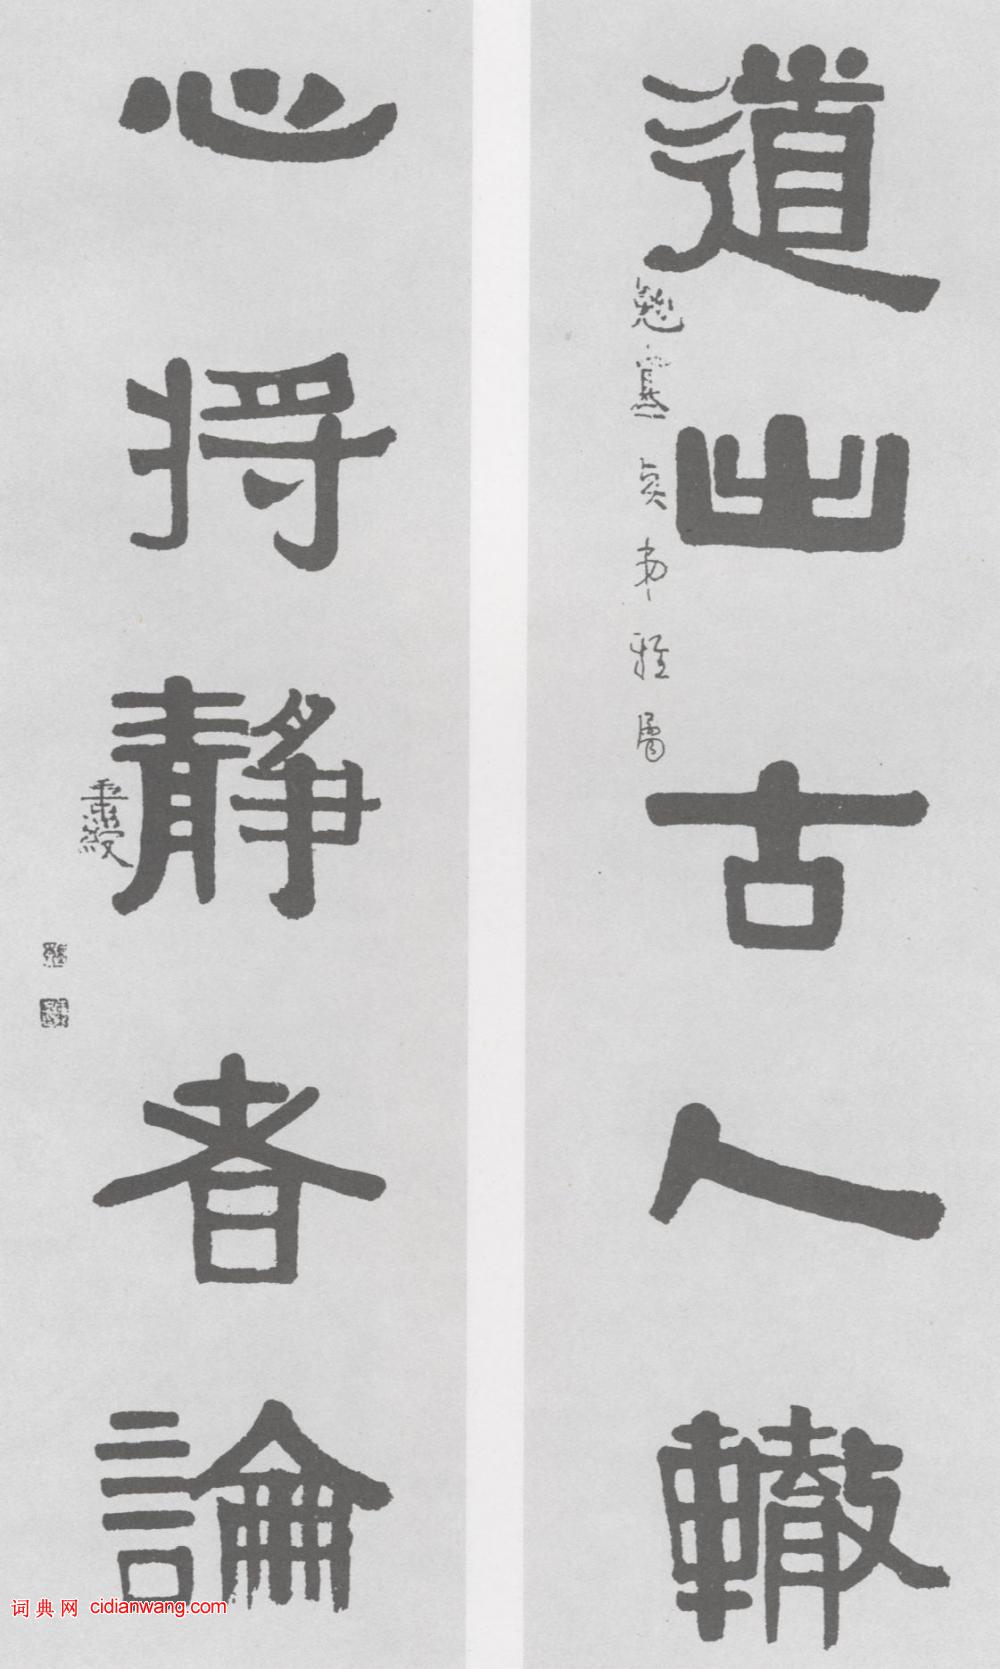 道出古人轍
心將靜者論
秉綬
词典网 cidianwang.com